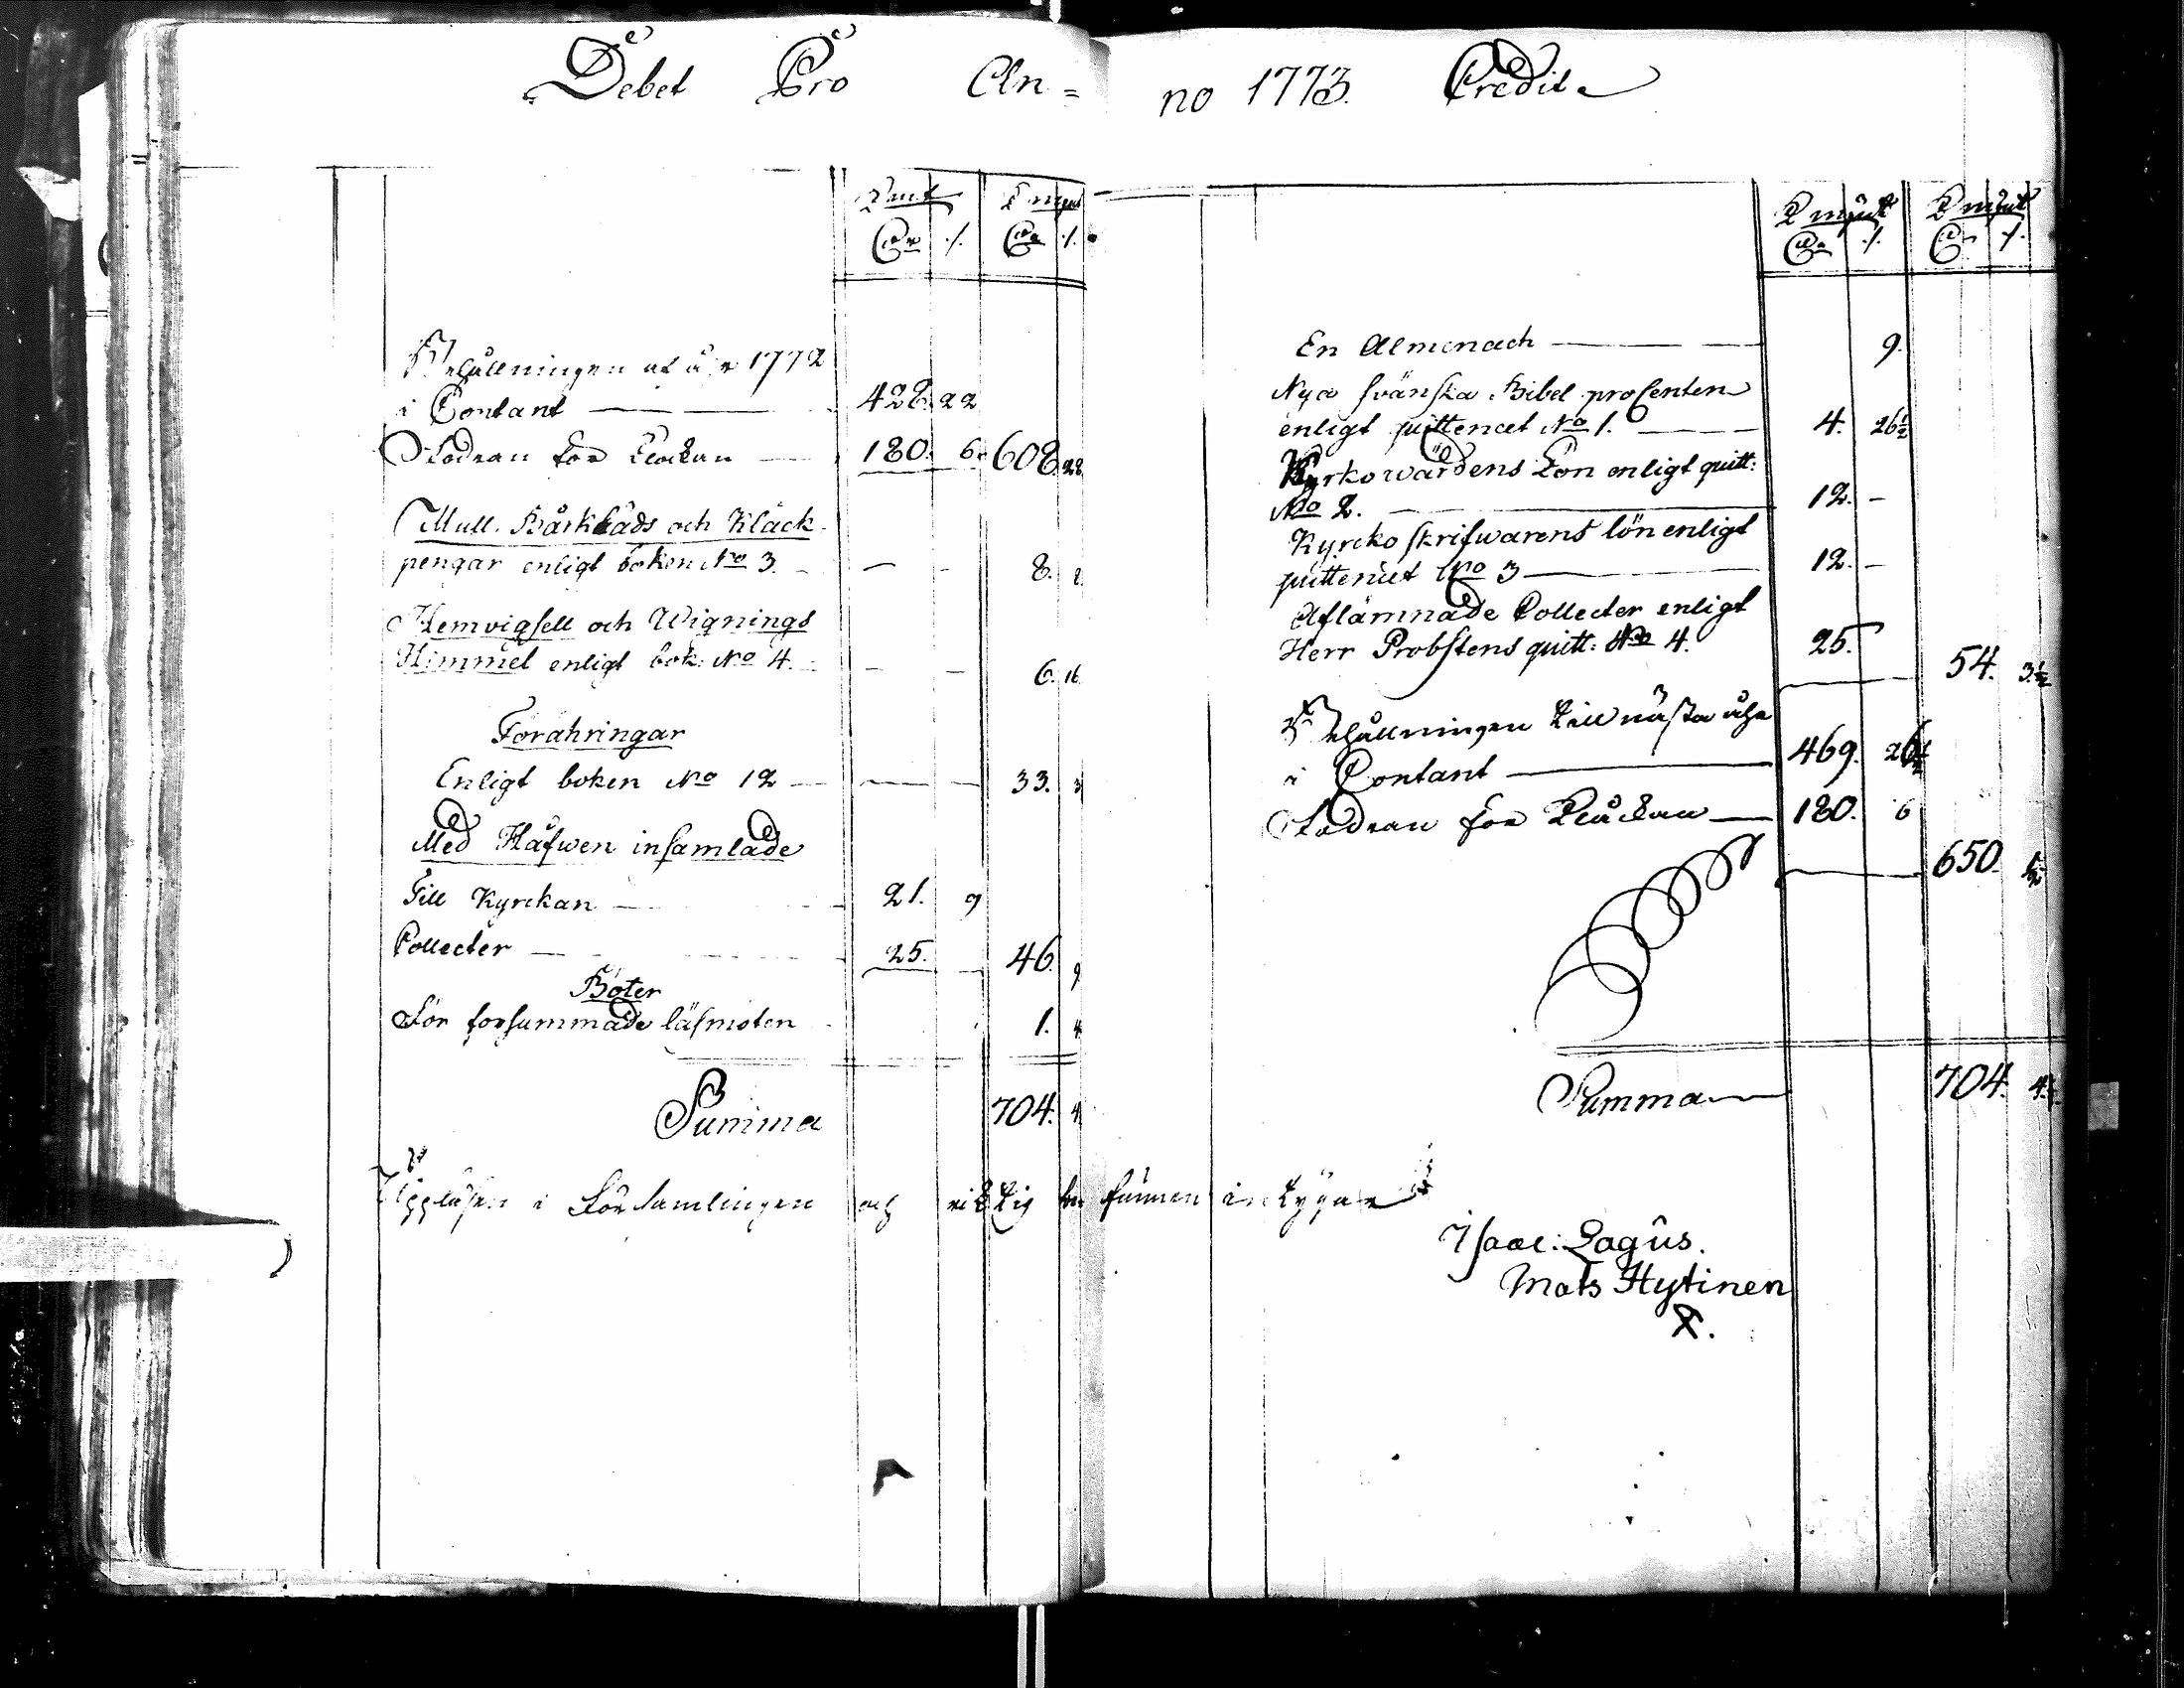 Debet Pro An=
Kmt Kmynt
Dr ./. Dr ./.
Behållningen af år 1772
i Contant 428. 22
Fodran för Klockan 180. 6. 608. 28
Mull. Bårkläds och Kläck-
pengar enligt boken No 3. 8. 8.
Hemvigsell och Wignings
Himmel enligt bok: No 4. 6. 16
Förähringar
Enligt boken No 12 33. 3
Med Håfwen insamlade
Till Kyrckan 21. 9
Collecter 25. 46. 9
Böter
För försummade läsmöten 1. 4
Summa 704. 4
no 1773. Credit
Kmynt Kmynt
Dr ./. Dr ./.
En Almenach 9.
Nya svänska Bibel procenten
enligt quittencet No 1. 4. 26½
Kyrkowärdens Lön enligt quitt:
No 2. 12. -
Kyrcko skrifwarens lön enligt
quittencet No 3 12. -
Aflämnade Collecter enligt
Herr Probstens quitt: No 4. 25. 54. 3½
Behållningen till nästa åhr
i Contant 469. 26½
Fodran för Kläckan 180. 6
650. ½
Summa 704. 4
Uppläsen i Församlingen ochricktig befunnen intygar
Isaac: Lagus.
Mats Hytinen
X.